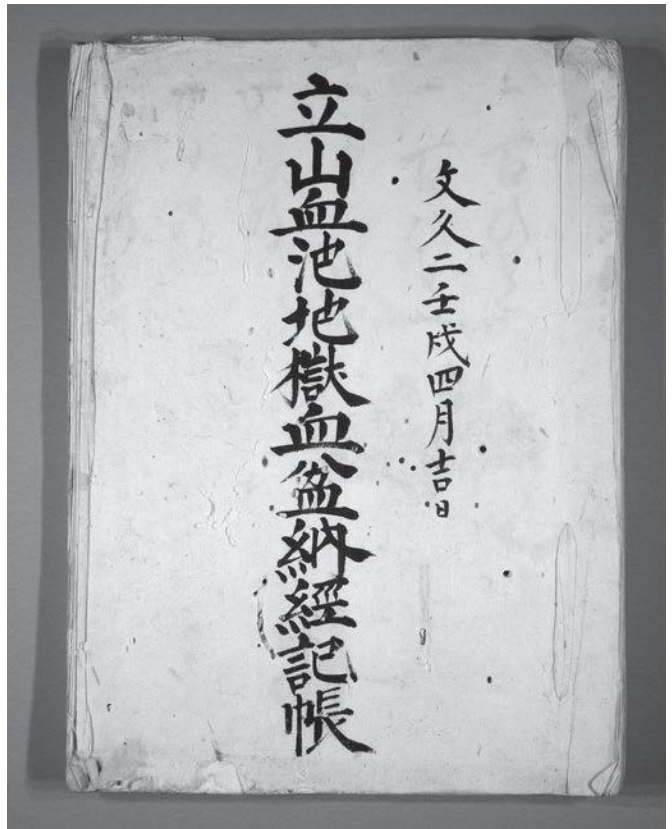 文久二壬戌四月吉日
立山血池地獄血盆納經記帳